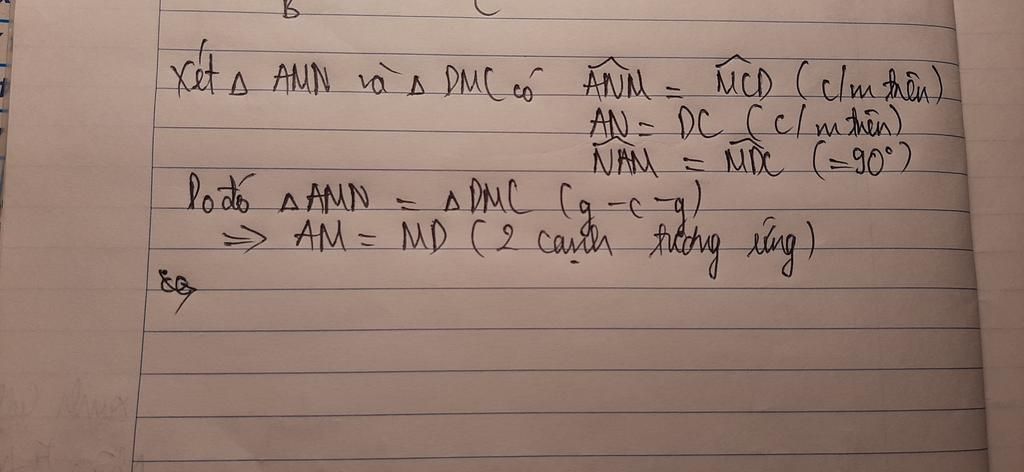 B C
Xét Δ AMN và Δ DMC có $\widehat{ANM}$ = $\widehat{MCD}$ (c/m trên)
AN = DC (c/m trên)
$\widehat{NAM}$ = $\widehat{MDC}$ (=90°)
Do đó Δ AMN = Δ DMC (g-c-g)
=> AM = MD (2 cạnh tương ứng)